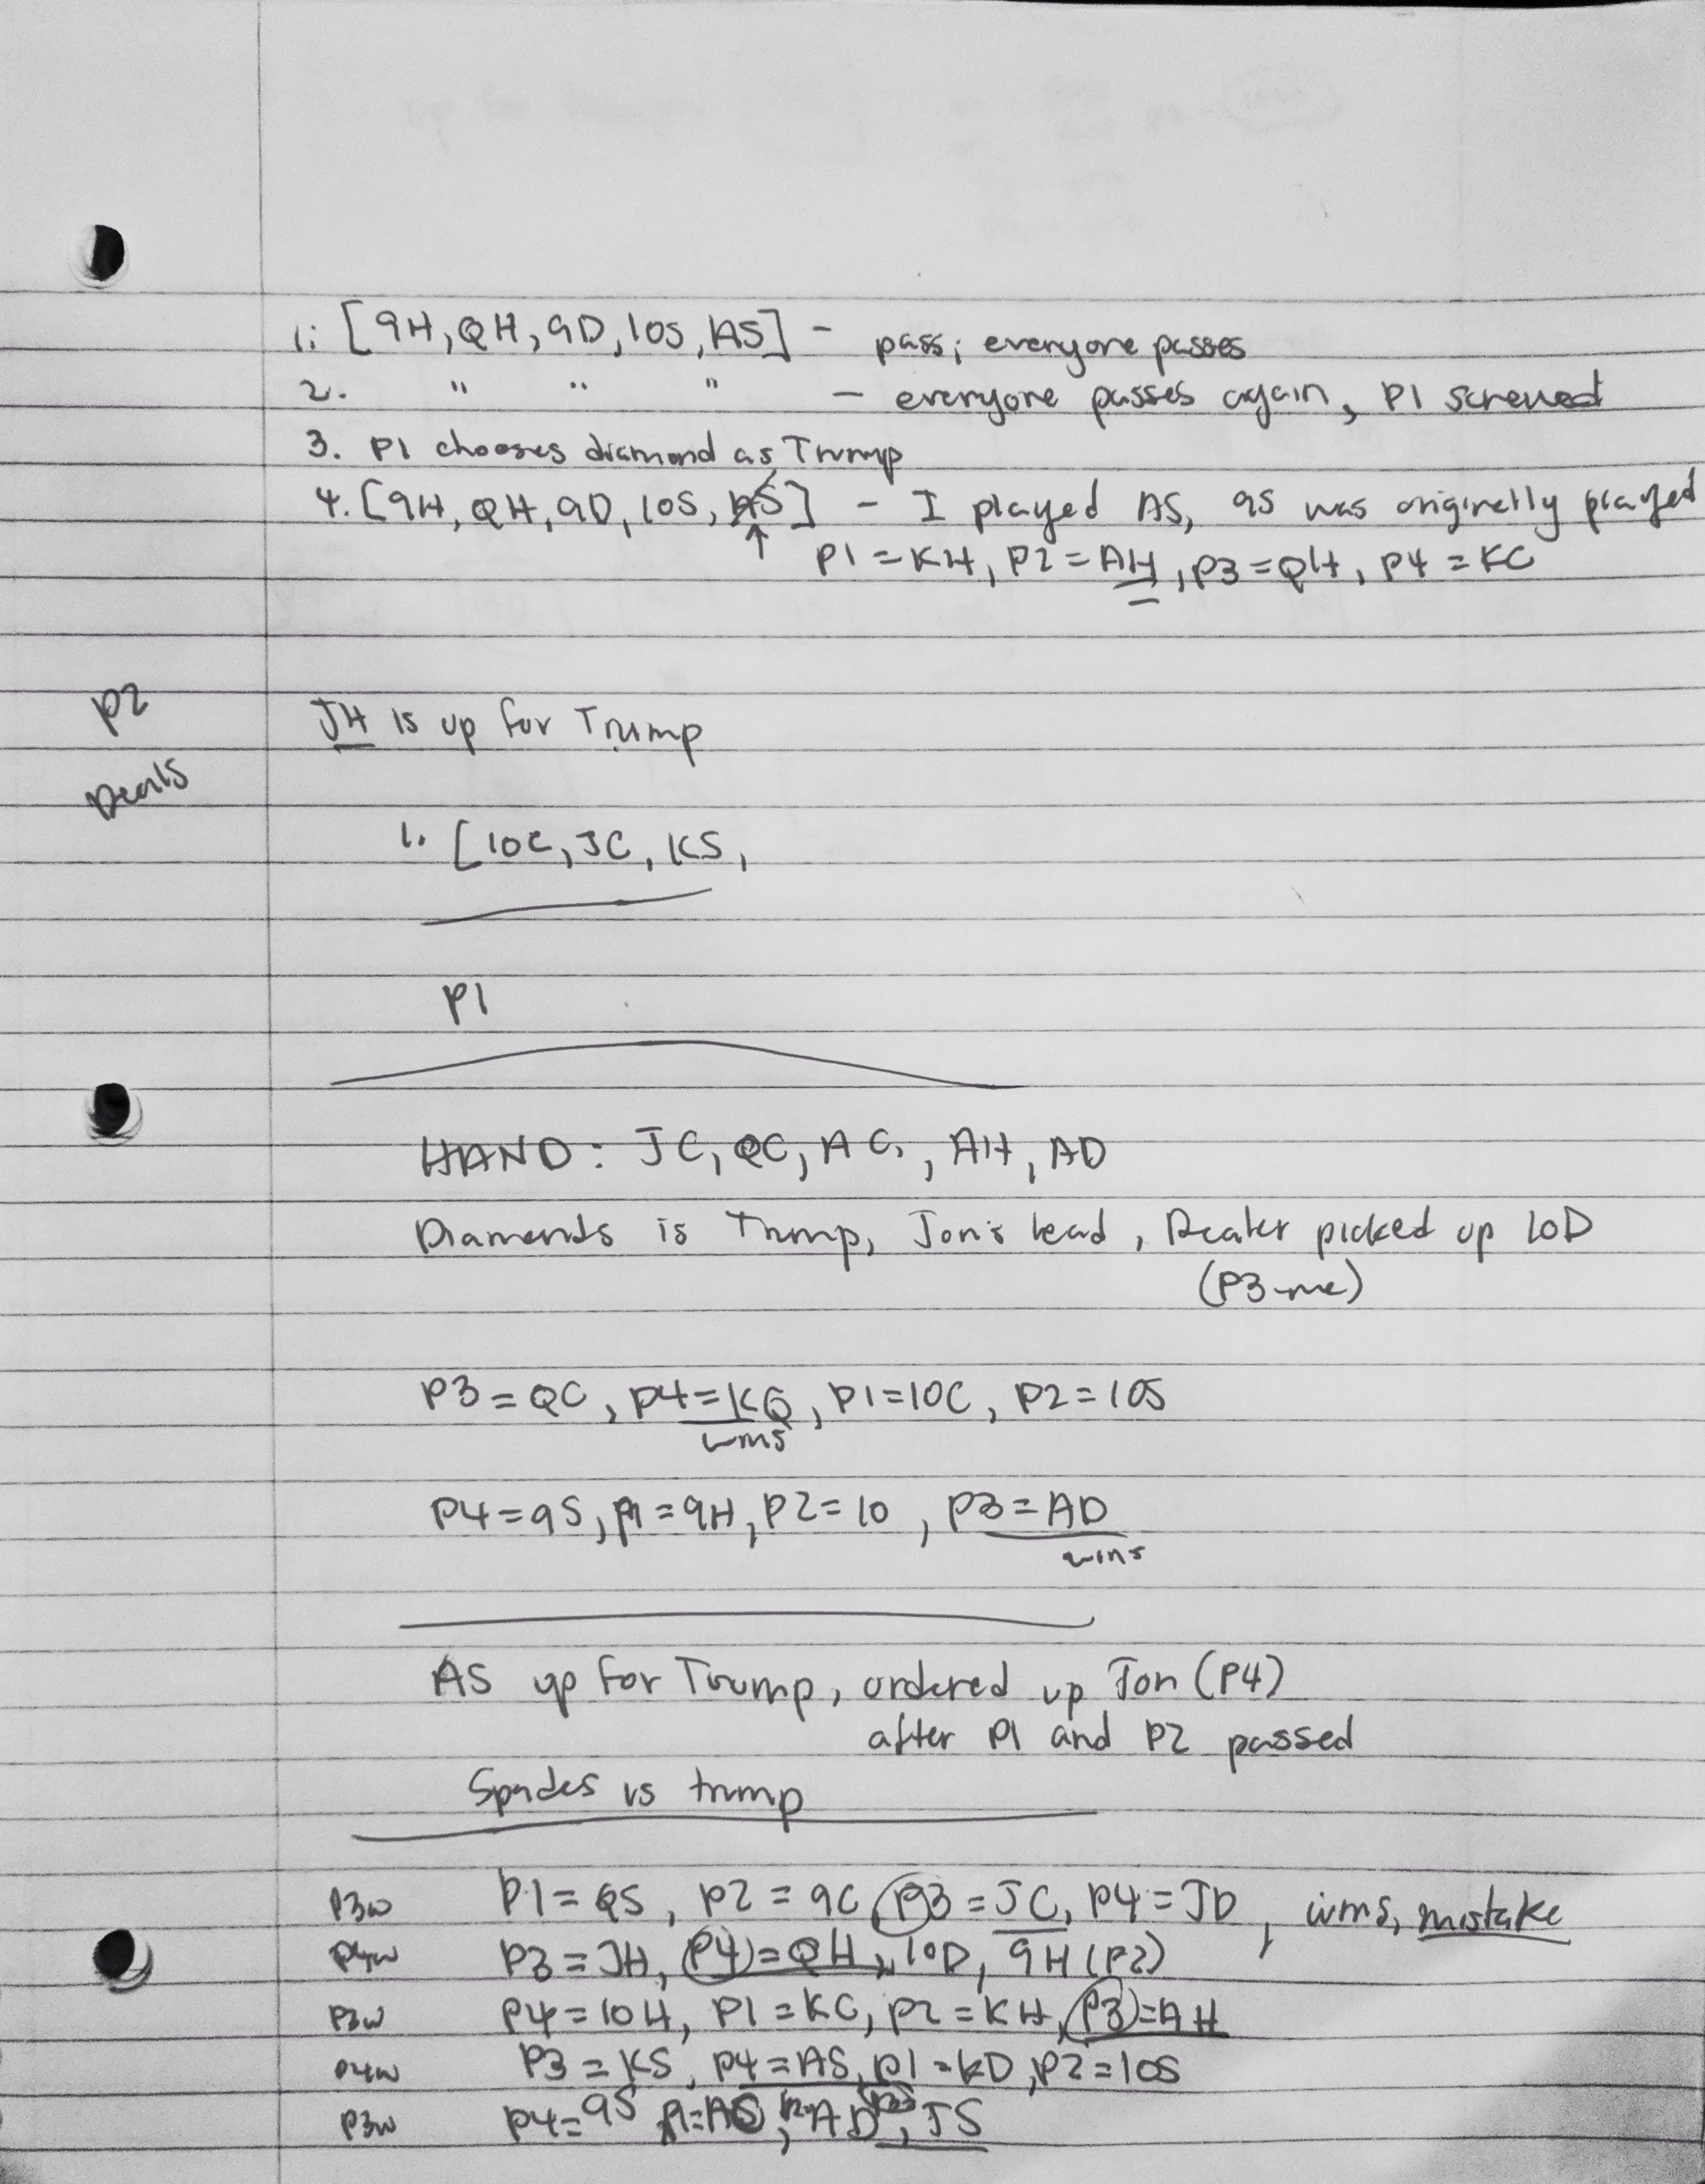 1: [9H, QH, 9D, 10S, AS] - pass; everyone passes
2. " " " - everyone passes again, P1 screwed
3. P1 chooses diamond as Trump
4. [9H, QH, 9D, 10S, AS] - I played AS, 9S was originally played
↑ P1 = KH, P2 = AH, P3 = QH, P4 = KC
P2
Deals
JH is up for Trump
1. [10C, JC, KS,
P1
HAND: JC, QC, AC, AH, AD
Diamonds is Trump, Jon's lead, Dealer picked up 10D
(P3-me)
P3 = QC, P4 = KC, P1 = 10C, P2 = 10S
wins
P4 = 9S, P1 = 9H, P2 = 10, P3 = AD
wins
AS up for Trump, ordered up Jon (P4)
after P1 and P2 passed
Spades is trump
P3w P1 = QS, P2 = 9C, P3 = JC, P4 = JD, wins, mistake
P4w P3 = JH, P4 = QH, 10D, 9H (P2)
P3w P4 = 10H, P1 = KC, P2 = KH, P3 = AH
P4w P3 = KS, P4 = AS, P1 = KD, P2 = 10S
P3w P4 = 9S P1 = AC, P2 = AD, JS